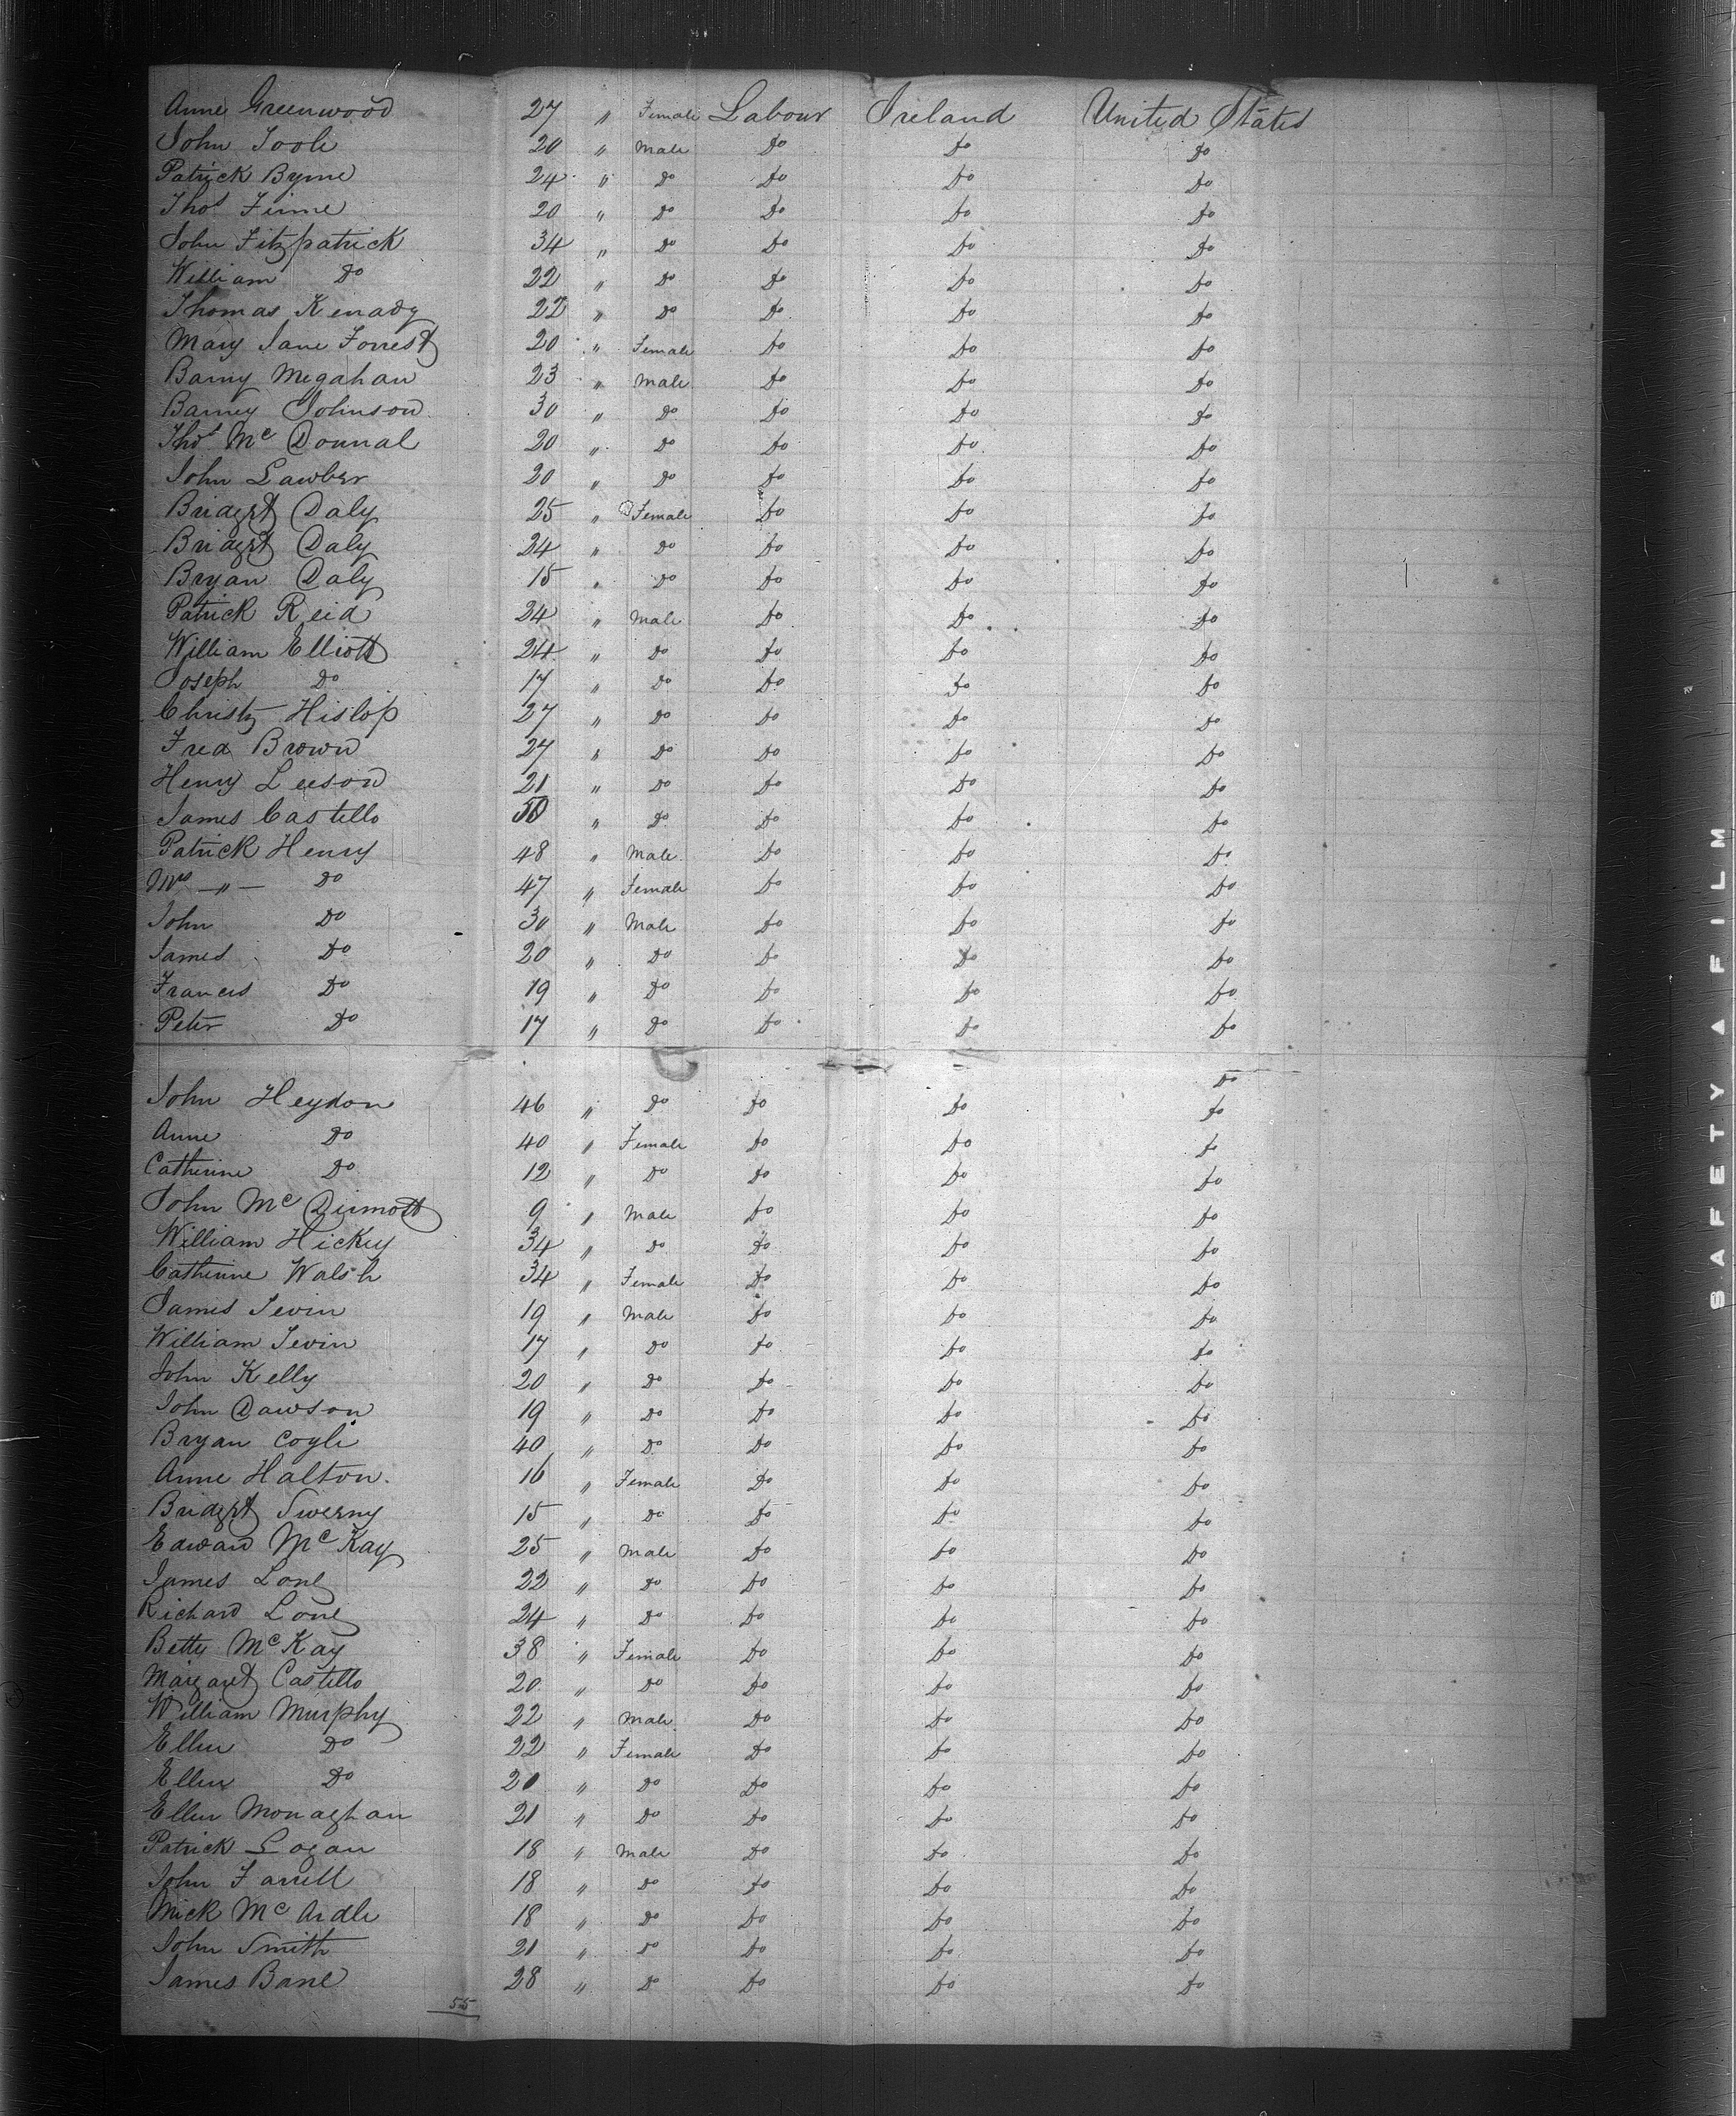 Anne Greenwood 27 " Female Labour Ireland United States
John Toole 20 " Male Do Do Do
Patrick Byrne 24 " Do Do Do Do
Thos Finne 20 " Do Do Do Do
John Fitzpatrick 34 " Do Do Do Do
William Do 22 " Do Do Do Do
Thomas Kenady 22 " Do Do Do Do
Mary Jane Forrest 20 " Female Do Do Do
Barny Megahan 23 " Male Do Do Do
Barney Johnson 30 " Do Do Do Do
Thos Mc Donnal 20 " Do Do Do Do
John Lawber 20 " Do Do Do Do
Bridget Daly 25 " Female Do Do Do
Bridget Daly 24 " Do Do Do Do
Bryan Daly 15 " Do Do Do Do
Patrick Reid 24 " Male Do Do Do
William Elliott 24 " Do Do Do Do
Joseph Do 17 " Do Do Do Do
Christy Hislop 27 " Do Do Do Do
Fred Brown 27 " Do Do Do Do
Henry Leeson 21 " Do Do Do Do
James Castello 50 " Do Do Do Do
Patrick Henry 48 " Male Do Do Do
Mrs — " — Do 47 " Female Do Do Do
John Do 30 " Male Do Do Do
James Do 20 " Do Do Do Do
Francis Do 19 " Do Do Do Do
Peter Do 17 " Do Do Do Do
Do
John Heydon 46 " Do Do Do Do
Anne Do 40 " Female Do Do Do
Catherine Do 12 " Do Do Do Do
John Mc Dirmott 9 " Male Do Do Do
William Hickey 34 " Do Do Do Do
Catherine Walsh 34 " Female Do Do Do
James Tevin 19 " Male Do Do Do
William Tevin 17 " Do Do Do Do
John Kelly 20 " Do Do Do Do
John Dawson 19 " Do Do Do Do
Bryan Coyle 40 " Do Do Do Do
Anne Halton. 16 " Female Do Do Do
Bridget Swerny 15 " Do Do Do Do
Edward McKay 25 " Male Do Do Do
James Long 22 " Do Do Do Do
Richard Long 24 " Do Do Do Do
Betty McKay 38 " Female Do Do Do
Margaret Castello 20 " Do Do Do Do
William Murphy 22 " Male Do Do Do
Ellen Do 22 " Female Do Do Do
Ellen Do 20 " Do Do Do Do
Ellen Monaghan 21 " Do Do Do Do
Patrick Logan 18 " Male Do Do Do
John Farrell 18 " Do Do Do Do
Mick McArdle 18 " Do Do Do Do
John Smith 21 " Do Do Do Do
James Bane 28 " Do Do Do Do
55
SAFETY A FILM